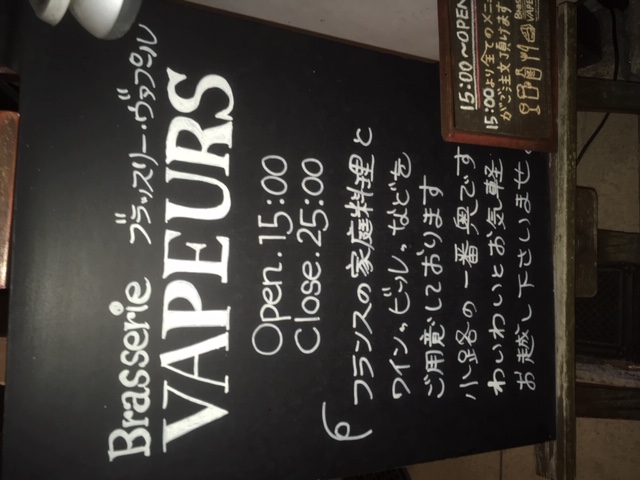 Brasserie ブラッスリー・ヴァプール
VAPEURS
Open. 15:00
Close. 25:00
フランスの家庭料理と
ワイン、ビール、などを
ご用意しております
小路の一番奥です
わいわいとお気軽
お越し下さいませ。
15:00〜OPEN
15:00より全てのメニ
がご注文頂けます